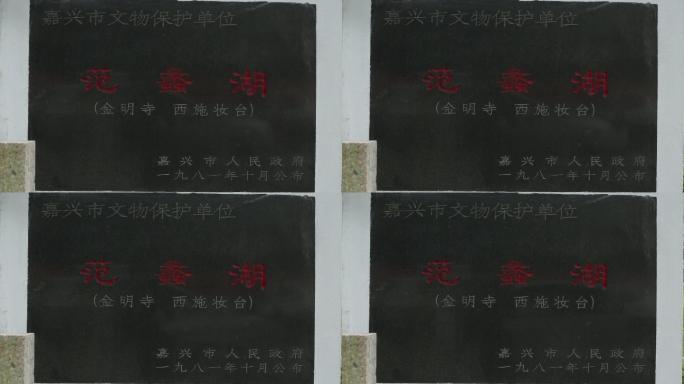 嘉兴市文物保护单位
范蠡湖
(金明寺 西施妆台)
嘉兴市人民政府
一九八一年十月公布
嘉兴市文物保护单位
范蠡湖
(金明寺 西施妆台)
嘉兴市人民政府
一九八一年十月公布
嘉兴市文物保护单位
范蠡湖
(金明寺 西施妆台)
嘉兴市人民政府
一九八一年十月公布
嘉兴市文物保护单位
范蠡湖
(金明寺 西施妆台)
嘉兴市人民政府
一九八一年十月公布